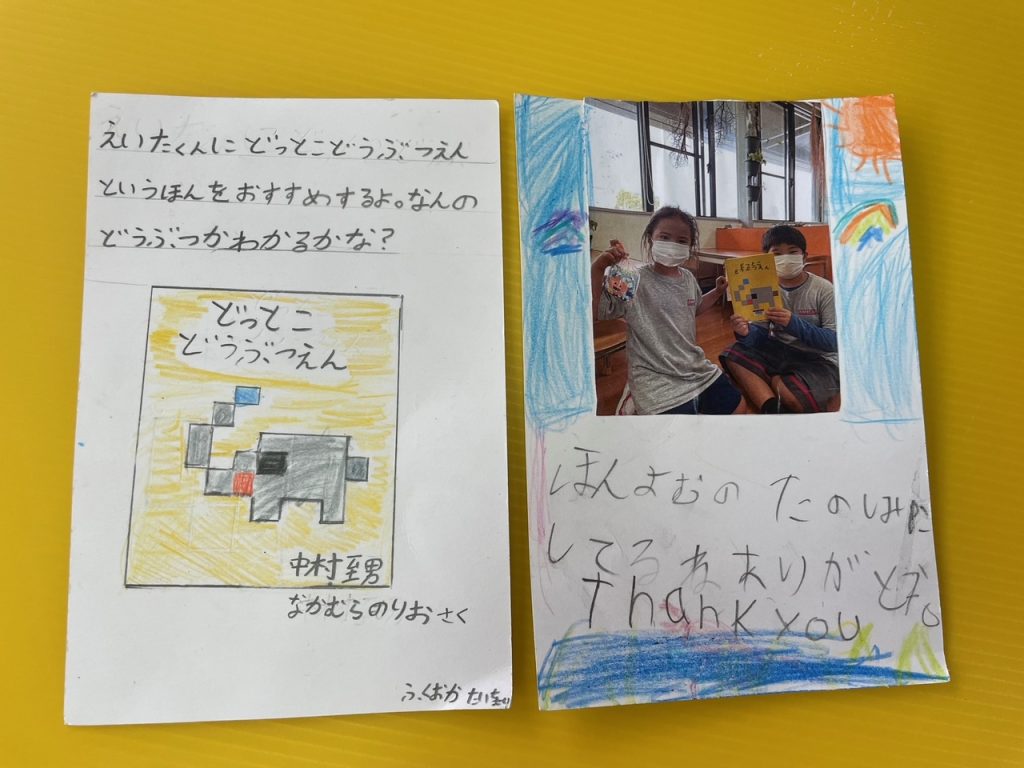 えいたくんにどっとこどうぶつえん
というほんをおすすめするよ。なんの
どうぶつかわかるかな?
どっとこ
どうぶつえん
中村至男
なかむらのりおさく
ふくおか たいち
ほんよむの たのしみに
してるねありがとう。
Thank you